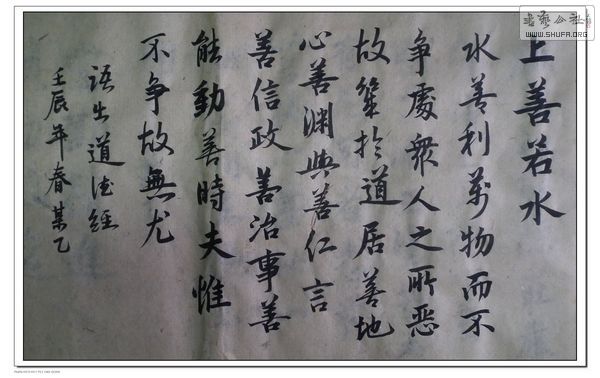 上善若水
水善利萬物而不
争處衆人之所惡
故幾於道居善地
心善渊與善仁言
善信政善治事善
能動善時夫惟
不争故無尤
语出道德經
壬辰年春某乙
書藝公社
WWW.SHUFA.ORG